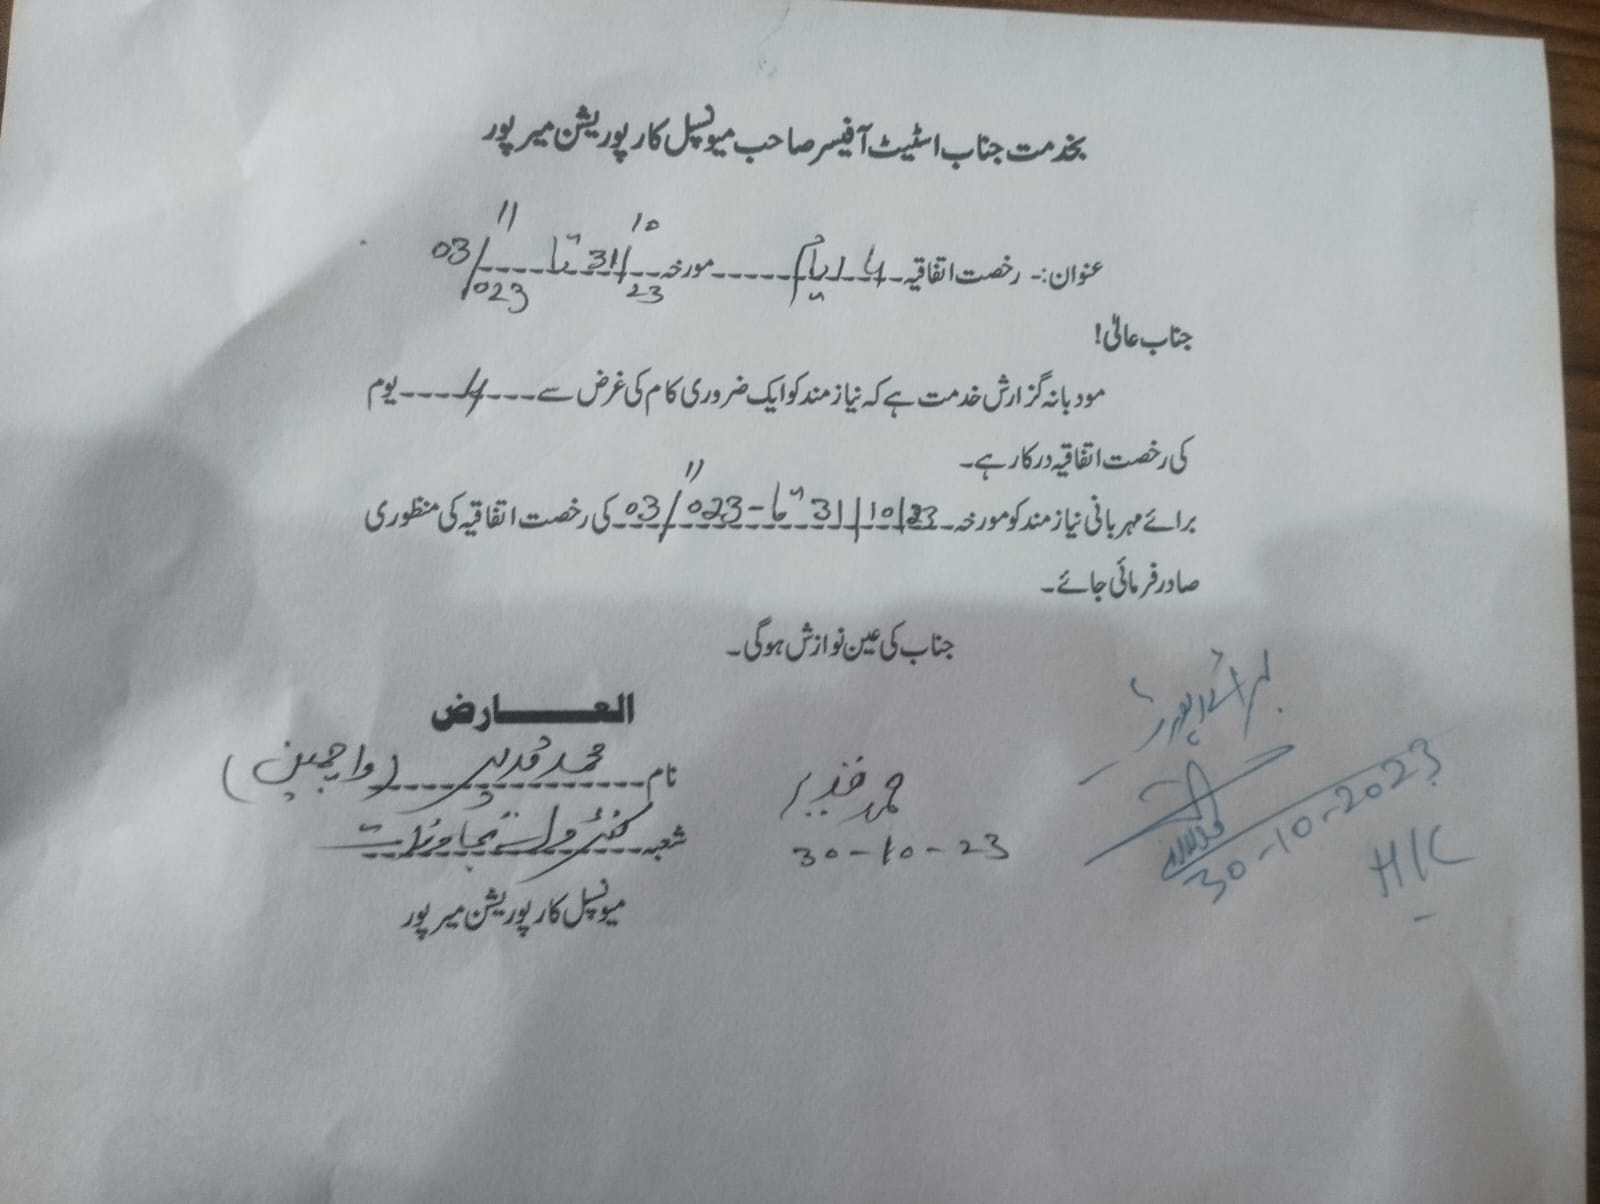 بخدمت جناب اسٹیٹ آفیسر صاحب میونسپل کارپوریشن میرپور
عنوان:۔ رخصت اتفاقیہ 4 ایام مورخہ 31/10/23 تا 03/11/023
جناب عالیٰ!
مودبانہ گزارش خدمت ہے کہ نیازمند کو ایک ضروری کام کی غرض سے 4 یوم
کی رخصت اتفاقیہ درکار ہے۔
برائے مہربانی نیازمند کو مورخہ 31/10/23 تا 03/11/023 کی رخصت اتفاقیہ کی منظوری
صادر فرمائی جائے۔
جناب کی عین نوازش ہوگی۔
العارض
نام محمد قدیر (واچمین)
شعبہ کنٹرول تجاوزات
میونسپل کارپوریشن میرپور
محمد قدیر
30-10-23
برائے رپورٹ
30-10-2023
HK